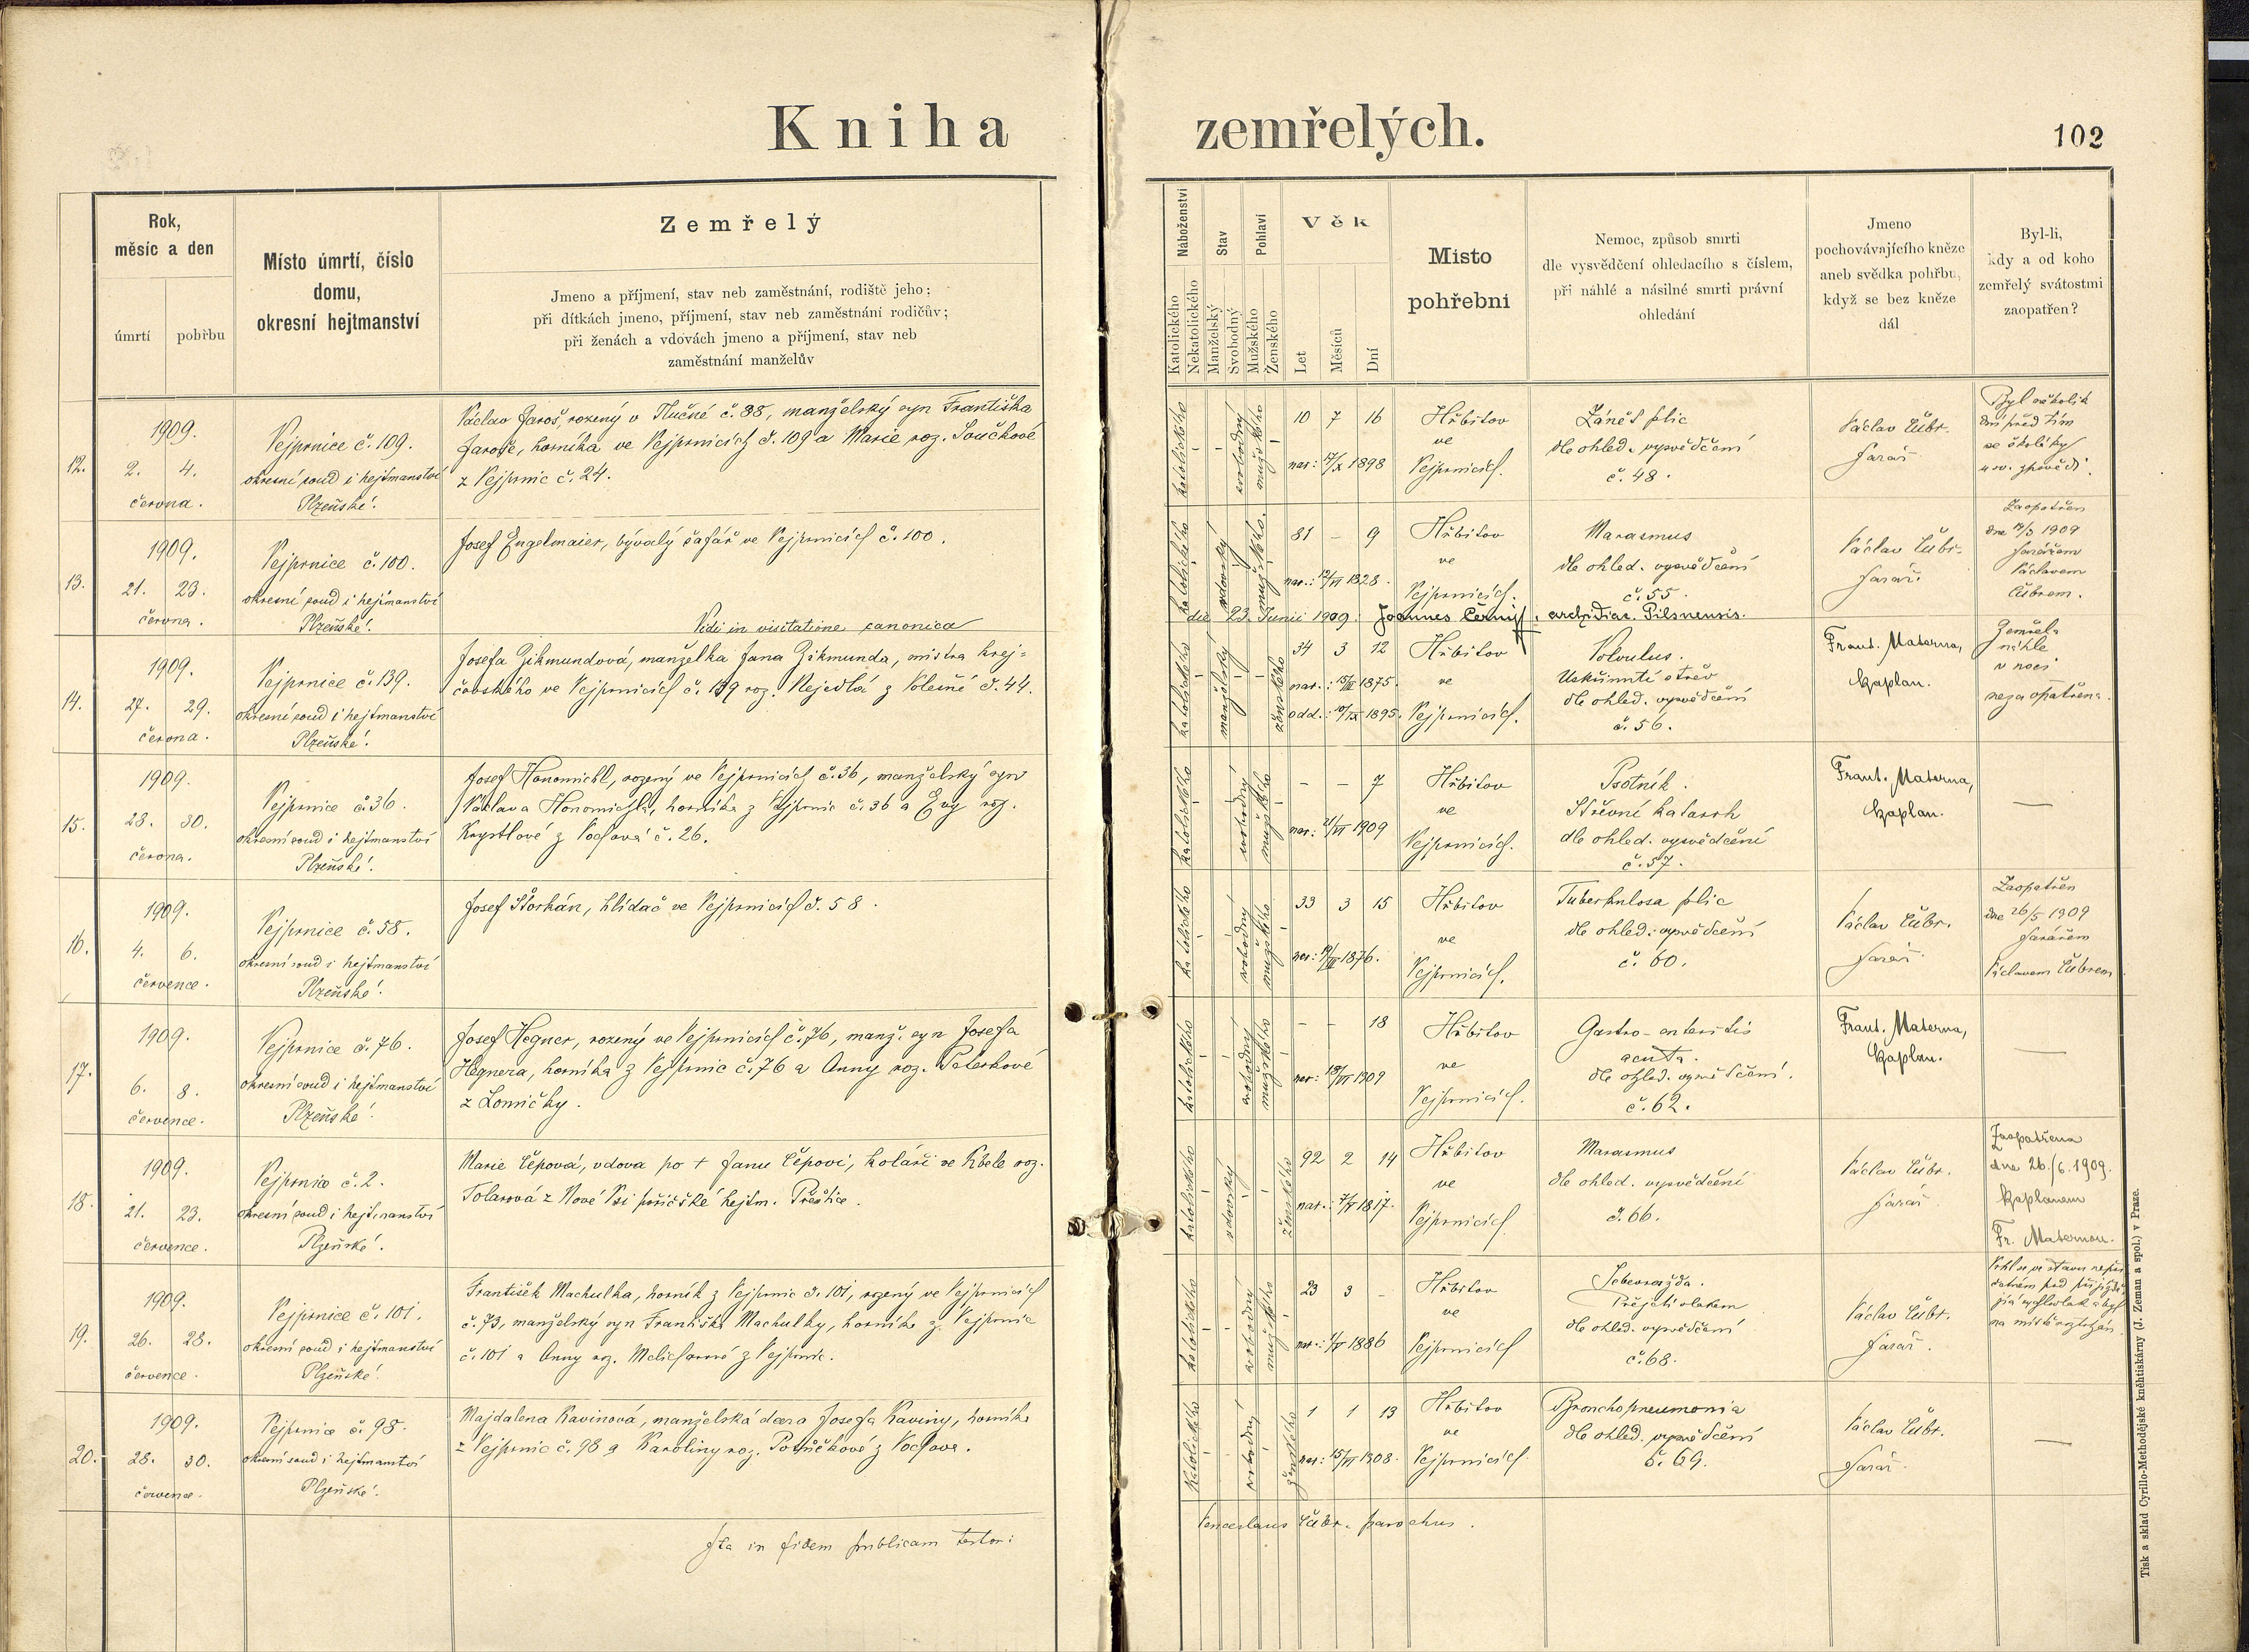 Kniha zemřelých.
102
Rok,
měsíc a den
úmrtí
pohřbu
Místo úmrtí, číslo
domu,
okresní hejtmanství
Zemřelý
Jmeno a příjmení, stav neb zaměstnání, rodiště jeho;
při dítkách jmeno, příjmení, stav neb zaměstnání rodičův;
při ženách a vdovách jmeno a příjmení, stav neb
zaměstnání manželův
Náboženství
Katolického
Nekatolického
Stav
Manželský
Svobodný
Pohlaví
Mužského
Ženského
Věk
Let
Měsíců
Dní
Misto
pohřebni
Nemoc, způsob smrti
dle vysvědčení ohledacího s číslem,
při náhlé a násilné smrti právní
ohledání
Jmeno
pochovávajícího kněze
aneb svědka pohřbu,
když se bez kněze
dál
Byl-li,
kdy a od koho
zemřelý svátostmi
zaopatřen?
12.
1909.
2. 4.
června.
Vejprnice č. 109.
okresní soud i hejtmanství
Plzeňské.
Václav Jaroš, rozený v Tlučné č. 88, manželský syn Františka
Jaroše, horníka ve Vejprnicích č. 109 a Marie roz. Součkové
z Vejprnic č. 24.
katolického
svobodný
mužského
10 7 16
nar: 17/X 1898
Hřbitov
ve
Vejprnicích.
Zánět plic
dle ohled. vysvědčení
č. 48.
Václav Čubr.
farář
Byl několik
dní před tím
se školáky
u sv. zpovědi.
13.
1909.
21. 23.
června.
Vejprnice č. 100.
okresní soud i hejtmanství
Plzeňské.
Josef Engelmaier, bývalý šafář ve Vejprnicích č. 100.
katolického
vdovský
mužského.
81 - 9
nar.: 12/VI 1828.
Hřbitov
ve
Vejprnicích.
Marasmus
dle ohled. vysvědčení
č. 55.
Václav Čubr.
farář.
Zaopatřen
1909
farářem
Václavem
Čubrem.
Vidi in visitatione canonica
die 23. Junii 1909. Joannes Černý, archidiac. Pilsnensis.
14.
1909.
27. 29.
června.
Vejprnice č. 139.
okresní soud i hejtmanství
Plzeňské.
Josefa Zikmundová, manželka Jana Zikmunda, mistra krej-
čovského ve Vejprnicích č. 139 roz. Nejedlá z č. 44.
katolického
manželský
ženského
34 3 12
nar.: 15/III 1875.
odd.: 1895.
Hřbitov
ve
Vejprnicích.
Volvulus.
Uskřinutí střev
dle ohled. vysvědčení
č. 56.
Frant. Materna,
kaplan.
Zemřela
náhle
v noci
nezaopatřena.
15.
1909.
28. 30.
června.
Vejprnice č. 36.
okresní soud i hejtmanství
Plzeňské.
Josef Honomichl, rozený ve Vejprnicích č. 36, manželský syn
Václava Honomichla, horníka z Vejprnic č. 36 a Evy roz.
z Vochova č. 26.
katolického
svobodný
mužského
- - 7
nar: 21/VI 1909
Hřbitov
ve
Vejprnicích.
Psotník.
Střevní katarrh
dle ohled. vysvědčení
č. 57.
Frant. Materna,
kaplan.
—
16.
1909.
4. 6.
července.
Vejprnice č. 58.
okresní soud i hejtmanství
Plzeňské.
Josef Štorkán, hlídač ve Vejprnicích č. 58.
katolického
svobodný
mužského
33 3 15
nar: 19/III 1876.
Hřbitov
ve
Vejprnicích.
Tuberkulosa plic
dle ohled. vysvědčení
č. 60.
Václav Čubr.
farář.
Zaopatřen
dne 26/5 1909
farářem
Václavem Čubrem
17.
1909.
6. 8.
července.
Vejprnice č. 76.
okresní soud i hejtmanství
Plzeňské.
Josef Hegner, rozený ve Vejprnicích č. 76, manž. syn Josefa
Hegnera, horníka z Vejprnic č. 76 a Anny roz. Peterkové
z Lomičky.
katolického
svobodný
mužského
- - 18
nar: 18/VI 1909
Hřbitov
ve
Vejprnicích.
Gastro-enteritis
acuta.
dle ohled. vysvědčení.
č. 62.
Frant. Materna,
kaplan.
—
18.
1909.
21. 23.
července.
Vejprnice č. 2.
okresní soud i hejtmanství
Plzeňské.
Marie Čepová, vdova po + Janu Čepovi, koláři ve roz.
Tolarová z Nové Vsi poříčské hejtm. Přeštice.
katolického
vdovský
ženského
92 2 14
nar.: 7/V 1817.
Hřbitov
ve
Vejprnicích
Marasmus
dle ohled. vysvědčení
č. 66.
Václav Čubr.
farář
Zaopatřena
dne 26./6. 1909.
kaplanem
Fr. Maternou.
19.
1909.
26. 28.
července.
Vejprnice č. 101.
okresní soud i hejtmanství
Plzeňské.
František Machulka, horník z Vejprnic č. 101, rozený ve Vejprnicích
č. 73, manželský syn Františka Machulky, horníka z Vejprnic
č. 101 a Anny roz. Melicharové z Vejprnic.
katolického
svobodný
mužského
23 3 -
nar: 1886
Hřbitov
ve
Vejprnicích
Sebevražda.
Přejetí vlakem
dle ohled. vysvědčení
č. 68.
Václav Čubr.
farář.
Vrhl se ve stavu
pod
rychlovlak a byl
na místě roztrhán
20.
1909.
28. 30.
července.
Vejprnice č. 98.
okresní soud i hejtmanství
Plzeňské.
Majdalena Kavinová, manželská dcera Josefa Kaviny, horníka
z Vejprnic č. 98 a Karoliny roz. z Vochova.
katolického
svobodný
ženského
1 1 13
nar: 15/VI 1908.
Hřbitov
ve
Vejprnicích.
Bronchopneumonia
dle ohled. vysvědčení
č. 69.
Václav Čubr.
farář.
—
Ita in fidem publicam testor:
Venceslaus Čubr. parochus.
Tisk a sklad Cyrillo-Methodějské kněhtiskárny (J. Zeman a spol.) v Praze.